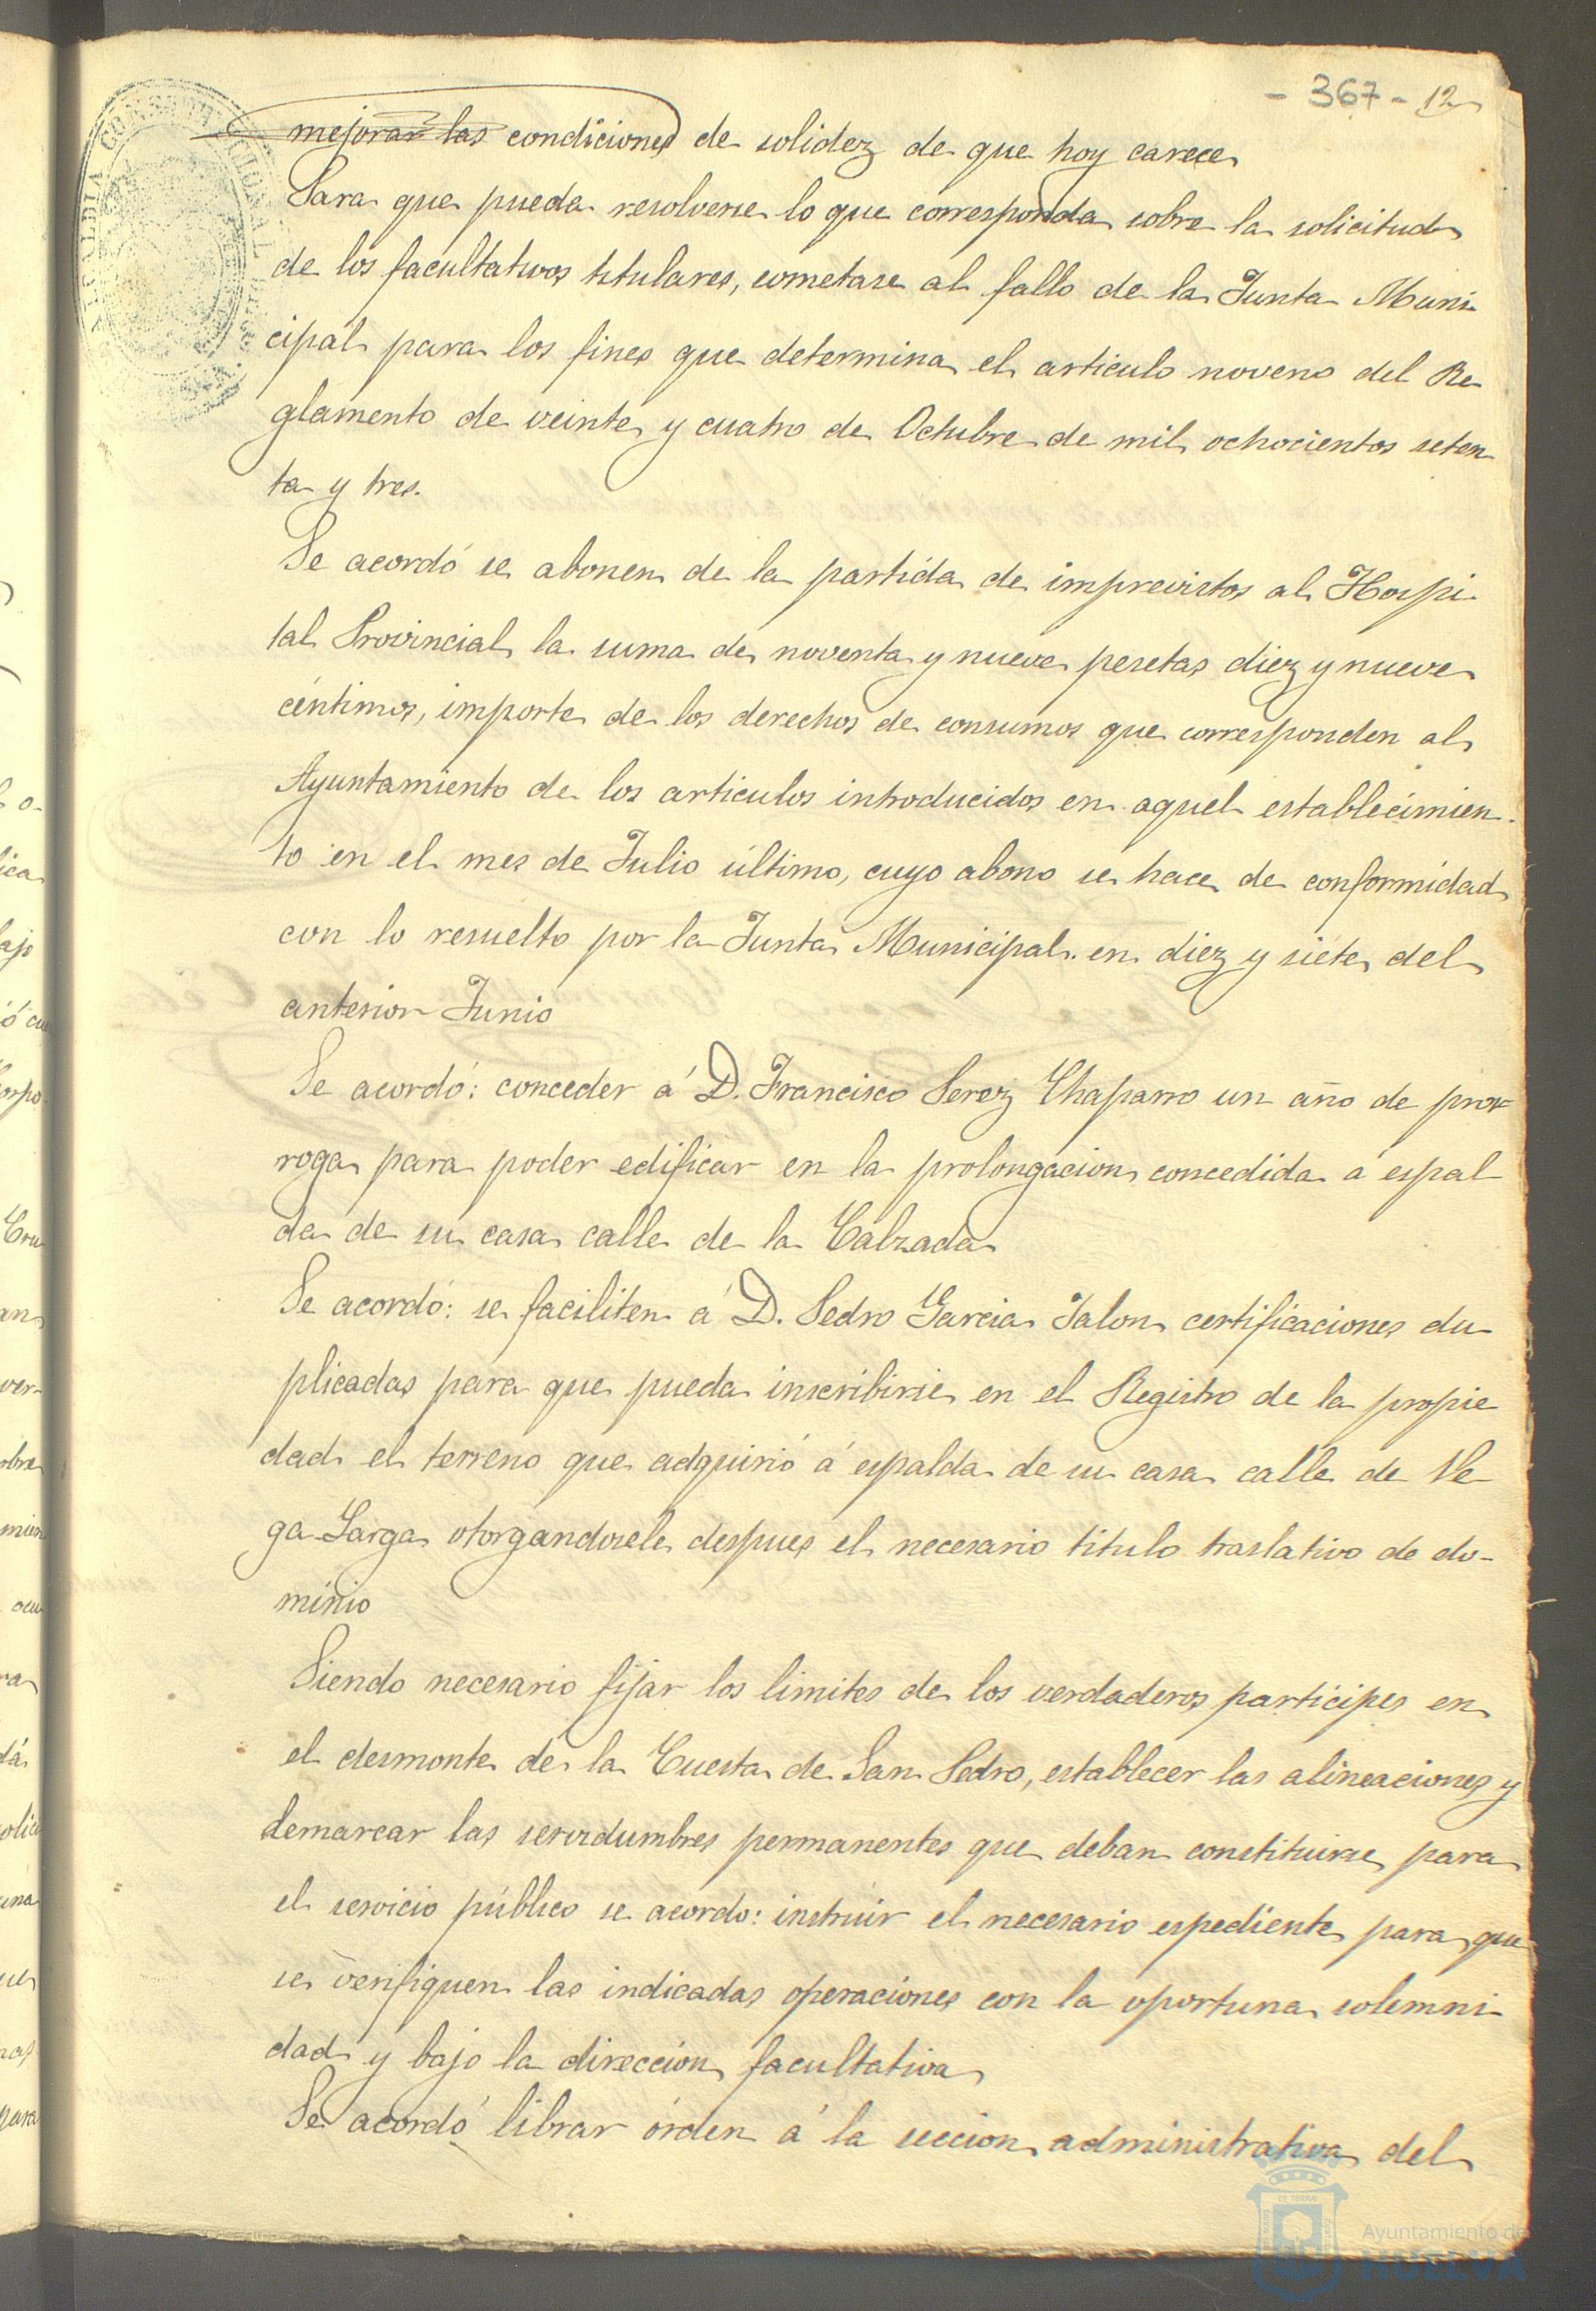 - 367 - 12
mejorar las condiciones de solidez de que hoy carece
Para que pueda resolverse lo que corresponda sobre la solicitud
de los facultativos titulares, cometase al fallo de la Junta Muni
cipal para los fines que determina el articulo noveno del Re
glamento de veinte y cuatro de Octubre de mil ochocientos seten
ta y tres.
Se acordó se abonen de la partida de imprevistos al Hospi
tal Provincial la suma de noventa y nueve pesetas diez y nueve
céntimos, importe de los derechos de consumos que corresponden al
Ayuntamiento de los articulos introducidos en aquel establecimien
to en el mes de Julio último, cuyo abono se hace de conformidad
con lo resuelto por la Junta Municipal en diez y siete del
anterior Junio
Se acordó: conceder á D. Francisco Perez Chaparro un año de pror
roga para poder edificar en la prolongacion concedida á espal
da de su casa calle de la Calzada
Se acordó: se faciliten á D. Pedro Garcia Jalon certificaciones du
plicadas para que pueda inscribirse en el Registro de la propie
dad el terreno que adquirió á espalda de su casa calle de Ve
ga Larga otorgandosele despues el necesario titulo traslativo de do-
minio
Siendo necesario fijar los limites de los verdaderos participes en
el desmonte de la Cuesta de San Pedro, establecer las alineaciones y
demarcar las servidumbres permanentes que deban constituirse para
el servicio público se acordo: instruir el necesario espediente para que
se verifiquen las indicadas operaciones con la oportuna solemni
dad y bajo la direccion facultativa
Se acordó librar órden á la seccion administrativa del
ALCALDIA CONSTITUCIONAL
Ayuntamiento de
HUELVA